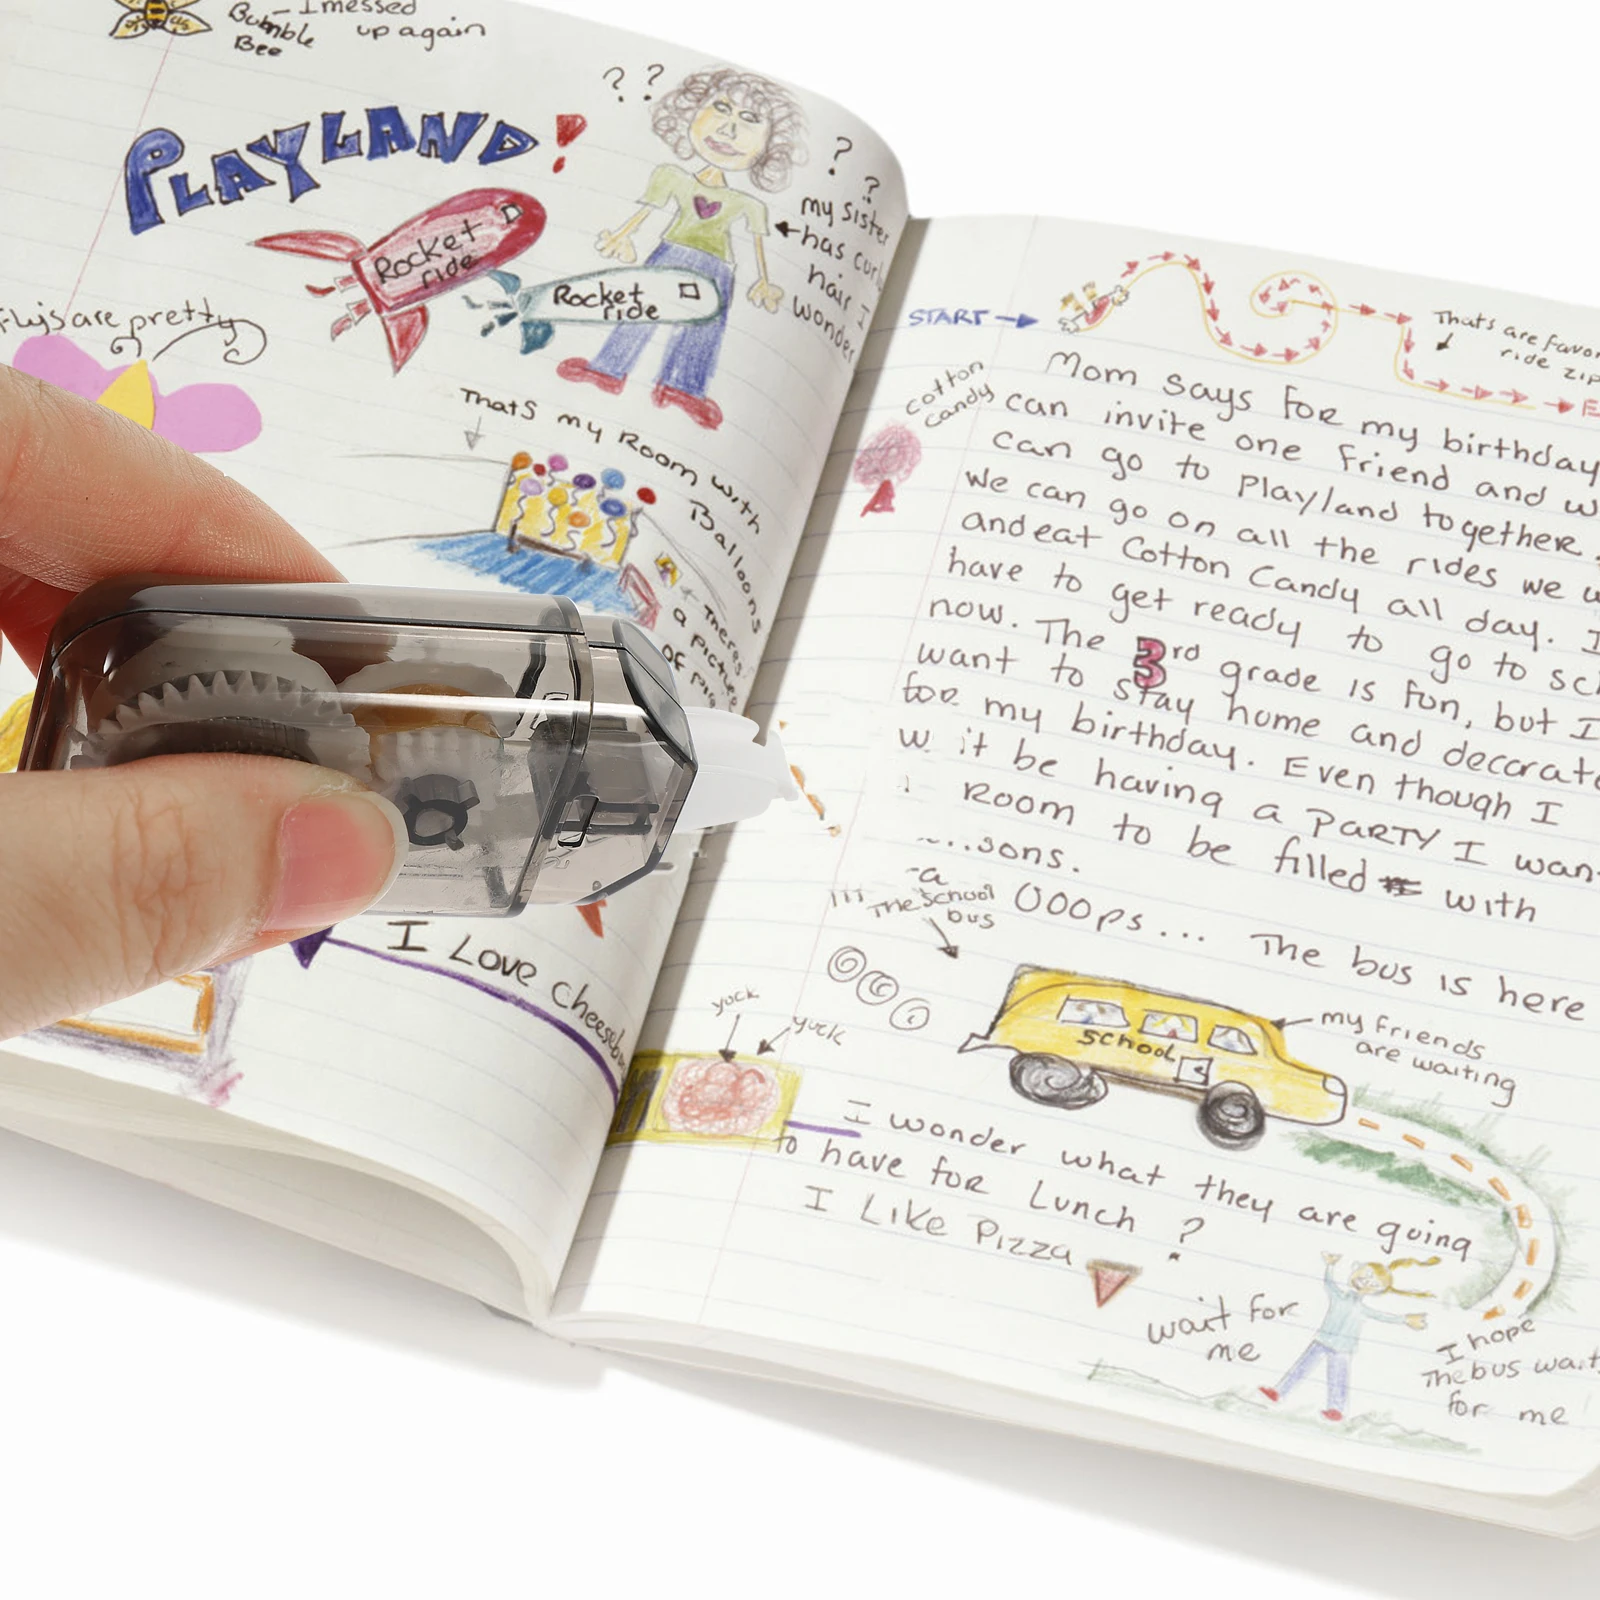 Bumble
Bee
- I messed
up again
PLAYLAND!
? ?
?
?
my sister
has
hair I
wonder
Rocket
ride
Rocket
ride
are pretty
Thats my Room with
Balloons
Theres
a picture
OF
I Love
START
Thats are
ride
cotton
candy
Mom says for my birthday
can invite one friend and
can go to Play/and together.
We can go on all the rides we
andeat Cotton Candy all day. I
have to get ready to go to
now. The 3rd grade is fun, but I
want to stay home and
for my birthday. Even though I
it be having a PARTY I
Room to be filled with
The School
bus
OOOps... The bus is here
SCHOOL
my friends
are waiting
yuck
yuck
I wonder what they are going
to have for Lunch ?
I Like Pizza
wait for
me
I hope
The bus
for me